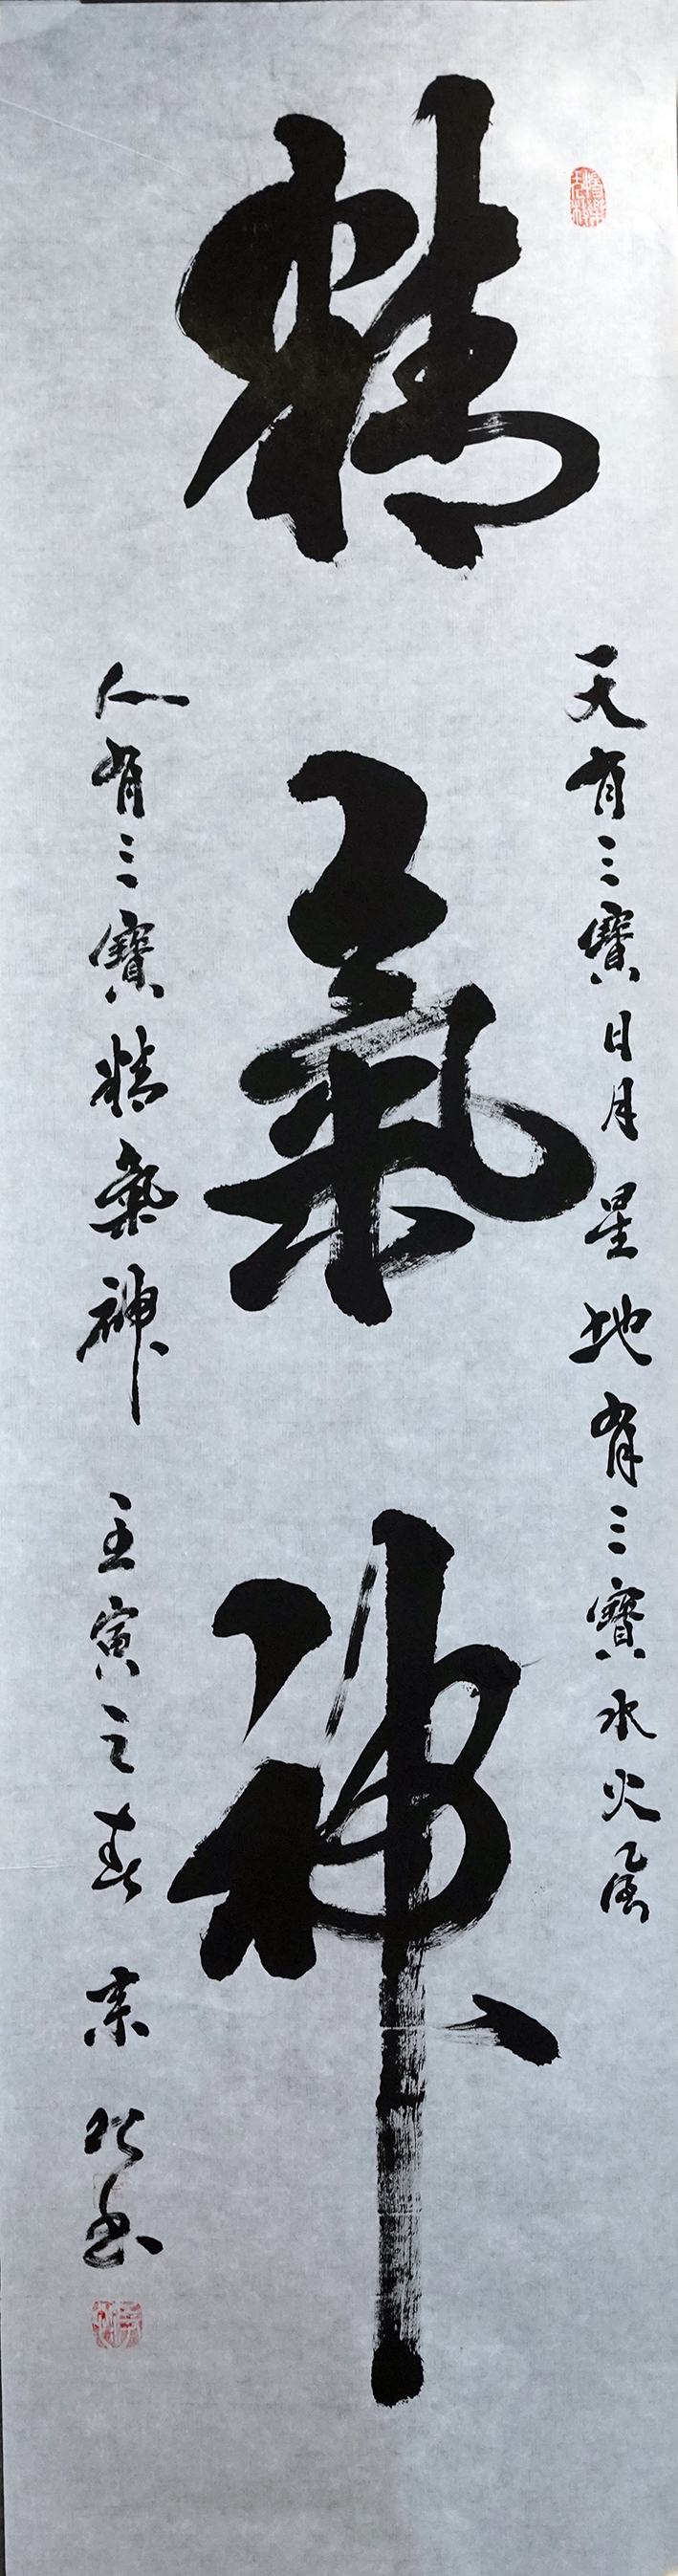 天有三寶日月星地有三寶水火風
精氣神
人有三寶精氣神 壬寅之春 书